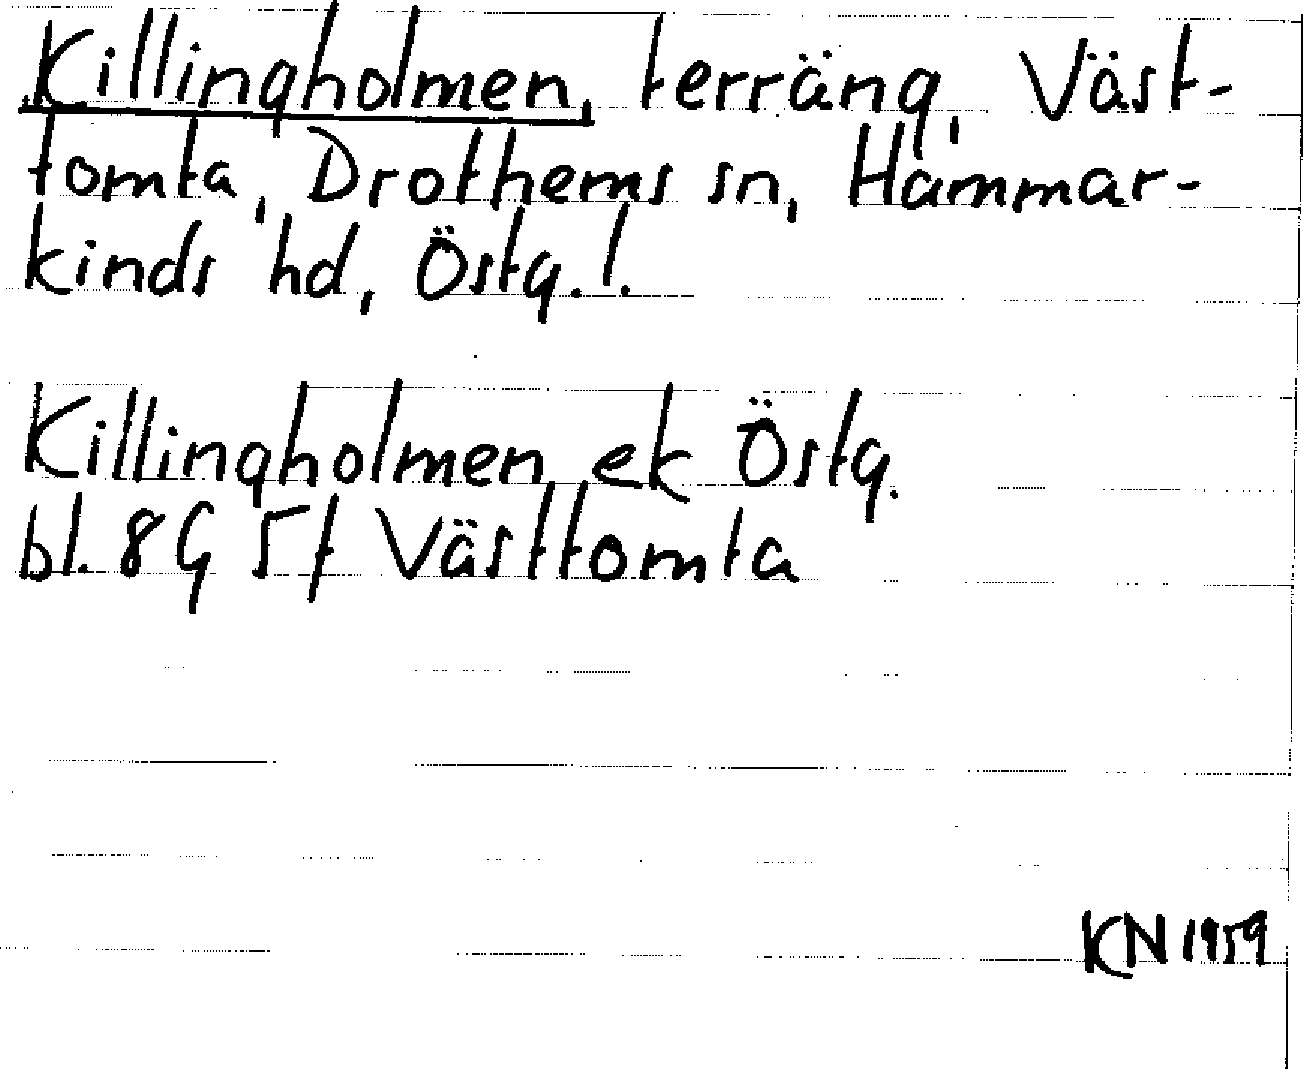 Killingholmen, terräng, Väst-
tomta, Drothems sn, Hammar-
kinds hd, Östg. l.
Killingholmen ek Östg.
bl. 8G 5f Västtomta
KN 1959